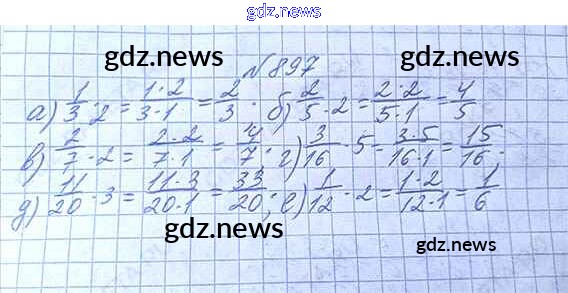 gdz.news
gdz.news gdz.news
№897
а) 1/3 · 2 = 1·2/3·1 = 2/3 · б) 2/5 · 2 = 2·2/5·1 = 4/5
в) 2/7 · 2 = 2·2/7·1 = 4/7; г) 3/16 · 5 = 3·5/16·1 = 15/16;
д) 11/20 · 3 = 11·3/20·1 = 33/20; е) 1/12 · 2 = 1·2/12·1 = 1/6
gdz.news gdz.news
gdz.news